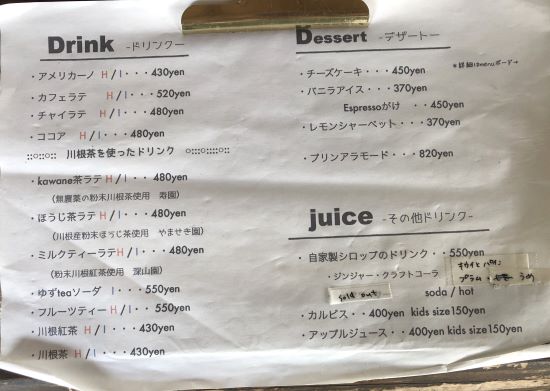 Drink -ドリンクー
・アメリカーノ H / I・・・430yen
・カフェラテ H / I・・・520yen
・チャイラテ H / I・・・480yen
・ココア H / I・・・480yen
::○::○:: 川根茶を使ったドリンク ○:::○::::○::
・kawane茶ラテ H / I・・ 480yen
(無農薬の粉末川根茶使用 寿園)
・ほうじ茶ラテ H / I・・・480yen
(川根産粉末ほうじ茶使用 やませき園)
・ミルクティーラテH / I・・・480yen
(粉末川根紅茶使用 深山園)
・ゆずteaソーダ I・・・550yen
・フルーツティー H / I・・550yen
・川根紅茶 H / I・・・430yen
・川根茶 H / I・・・430yen
Dessert -デザートー
*詳細はmenuボード→
・チーズケーキ・・・450yen
・バニラアイス・・・370yen
Espressoがけ ・・450yen
・レモンシャーベット・・・370yen
・プリンアラモード・・・820yen
juice -その他ドリンク-
・自家製シロップのドリンク・・550yen
・ジンジャー・クラフトコーラ
プラム・うめ
sold out
soda / hot
・カルピス・・400yen kids size150yen
・アップルジュース・・400yen kids size150yen